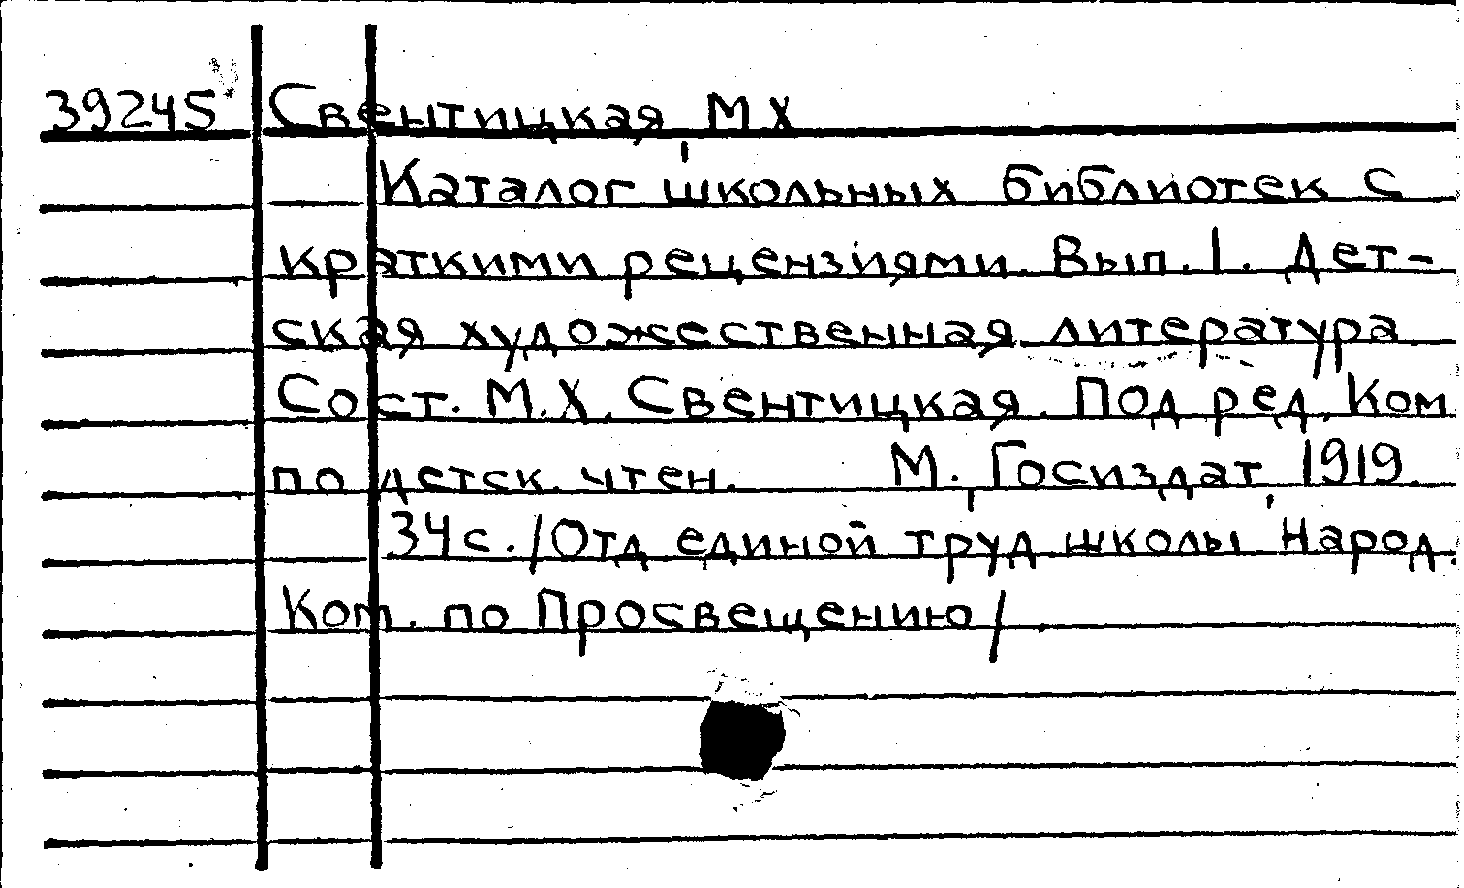 39245 Свентицкая, М Х
Каталог школьных библиотек с
краткими рецензиями. Вып. 1. Дет-
ская художественная литература
Сост. М. Х. Свентицкая. Под ред. Ком
по детск. чтен. М., Госиздат, 1919.
34с. /Отд единой труд. школы Народ.
Ком. по Просвещению/